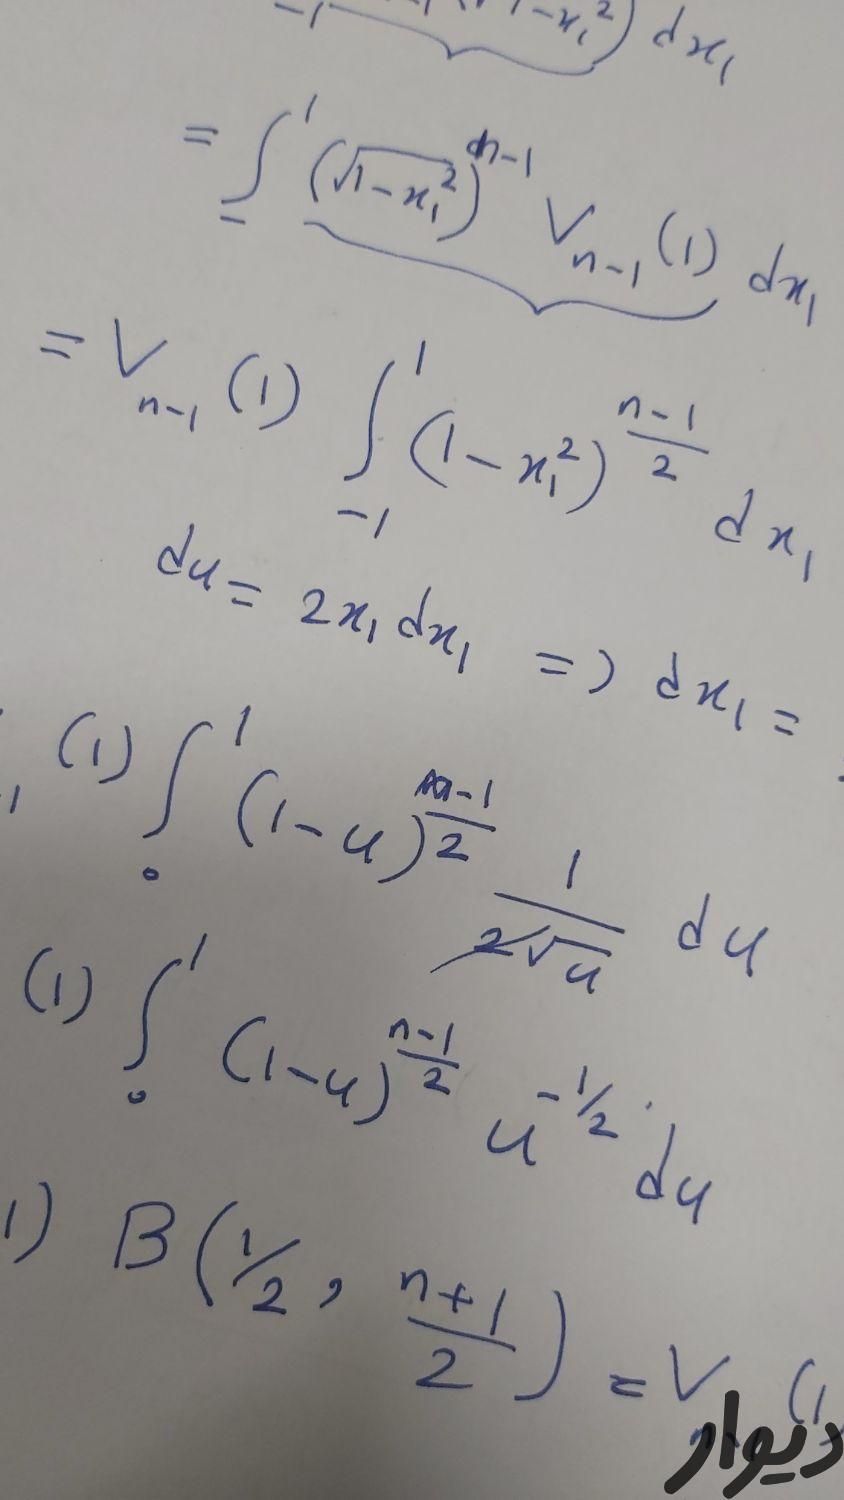 -1 √1-x₁²) dx₁
= ∫₋¹ (√1-x₁²)ⁿ⁻¹ Vₙ₋₁(1) dx₁
= Vₙ₋₁(1) ∫₋₁¹ (1-x₁²)^((n-1)/2) dx₁
du = 2x₁ dx₁ => dx₁ =
(1) ∫₀¹ (1-u)^((n-1)/2) 1/(2√u) du
(1) ∫₀¹ (1-u)^((n-1)/2) u^(-1/2) du
1) B(1/2, (n+1)/2) = V (1
دیوار